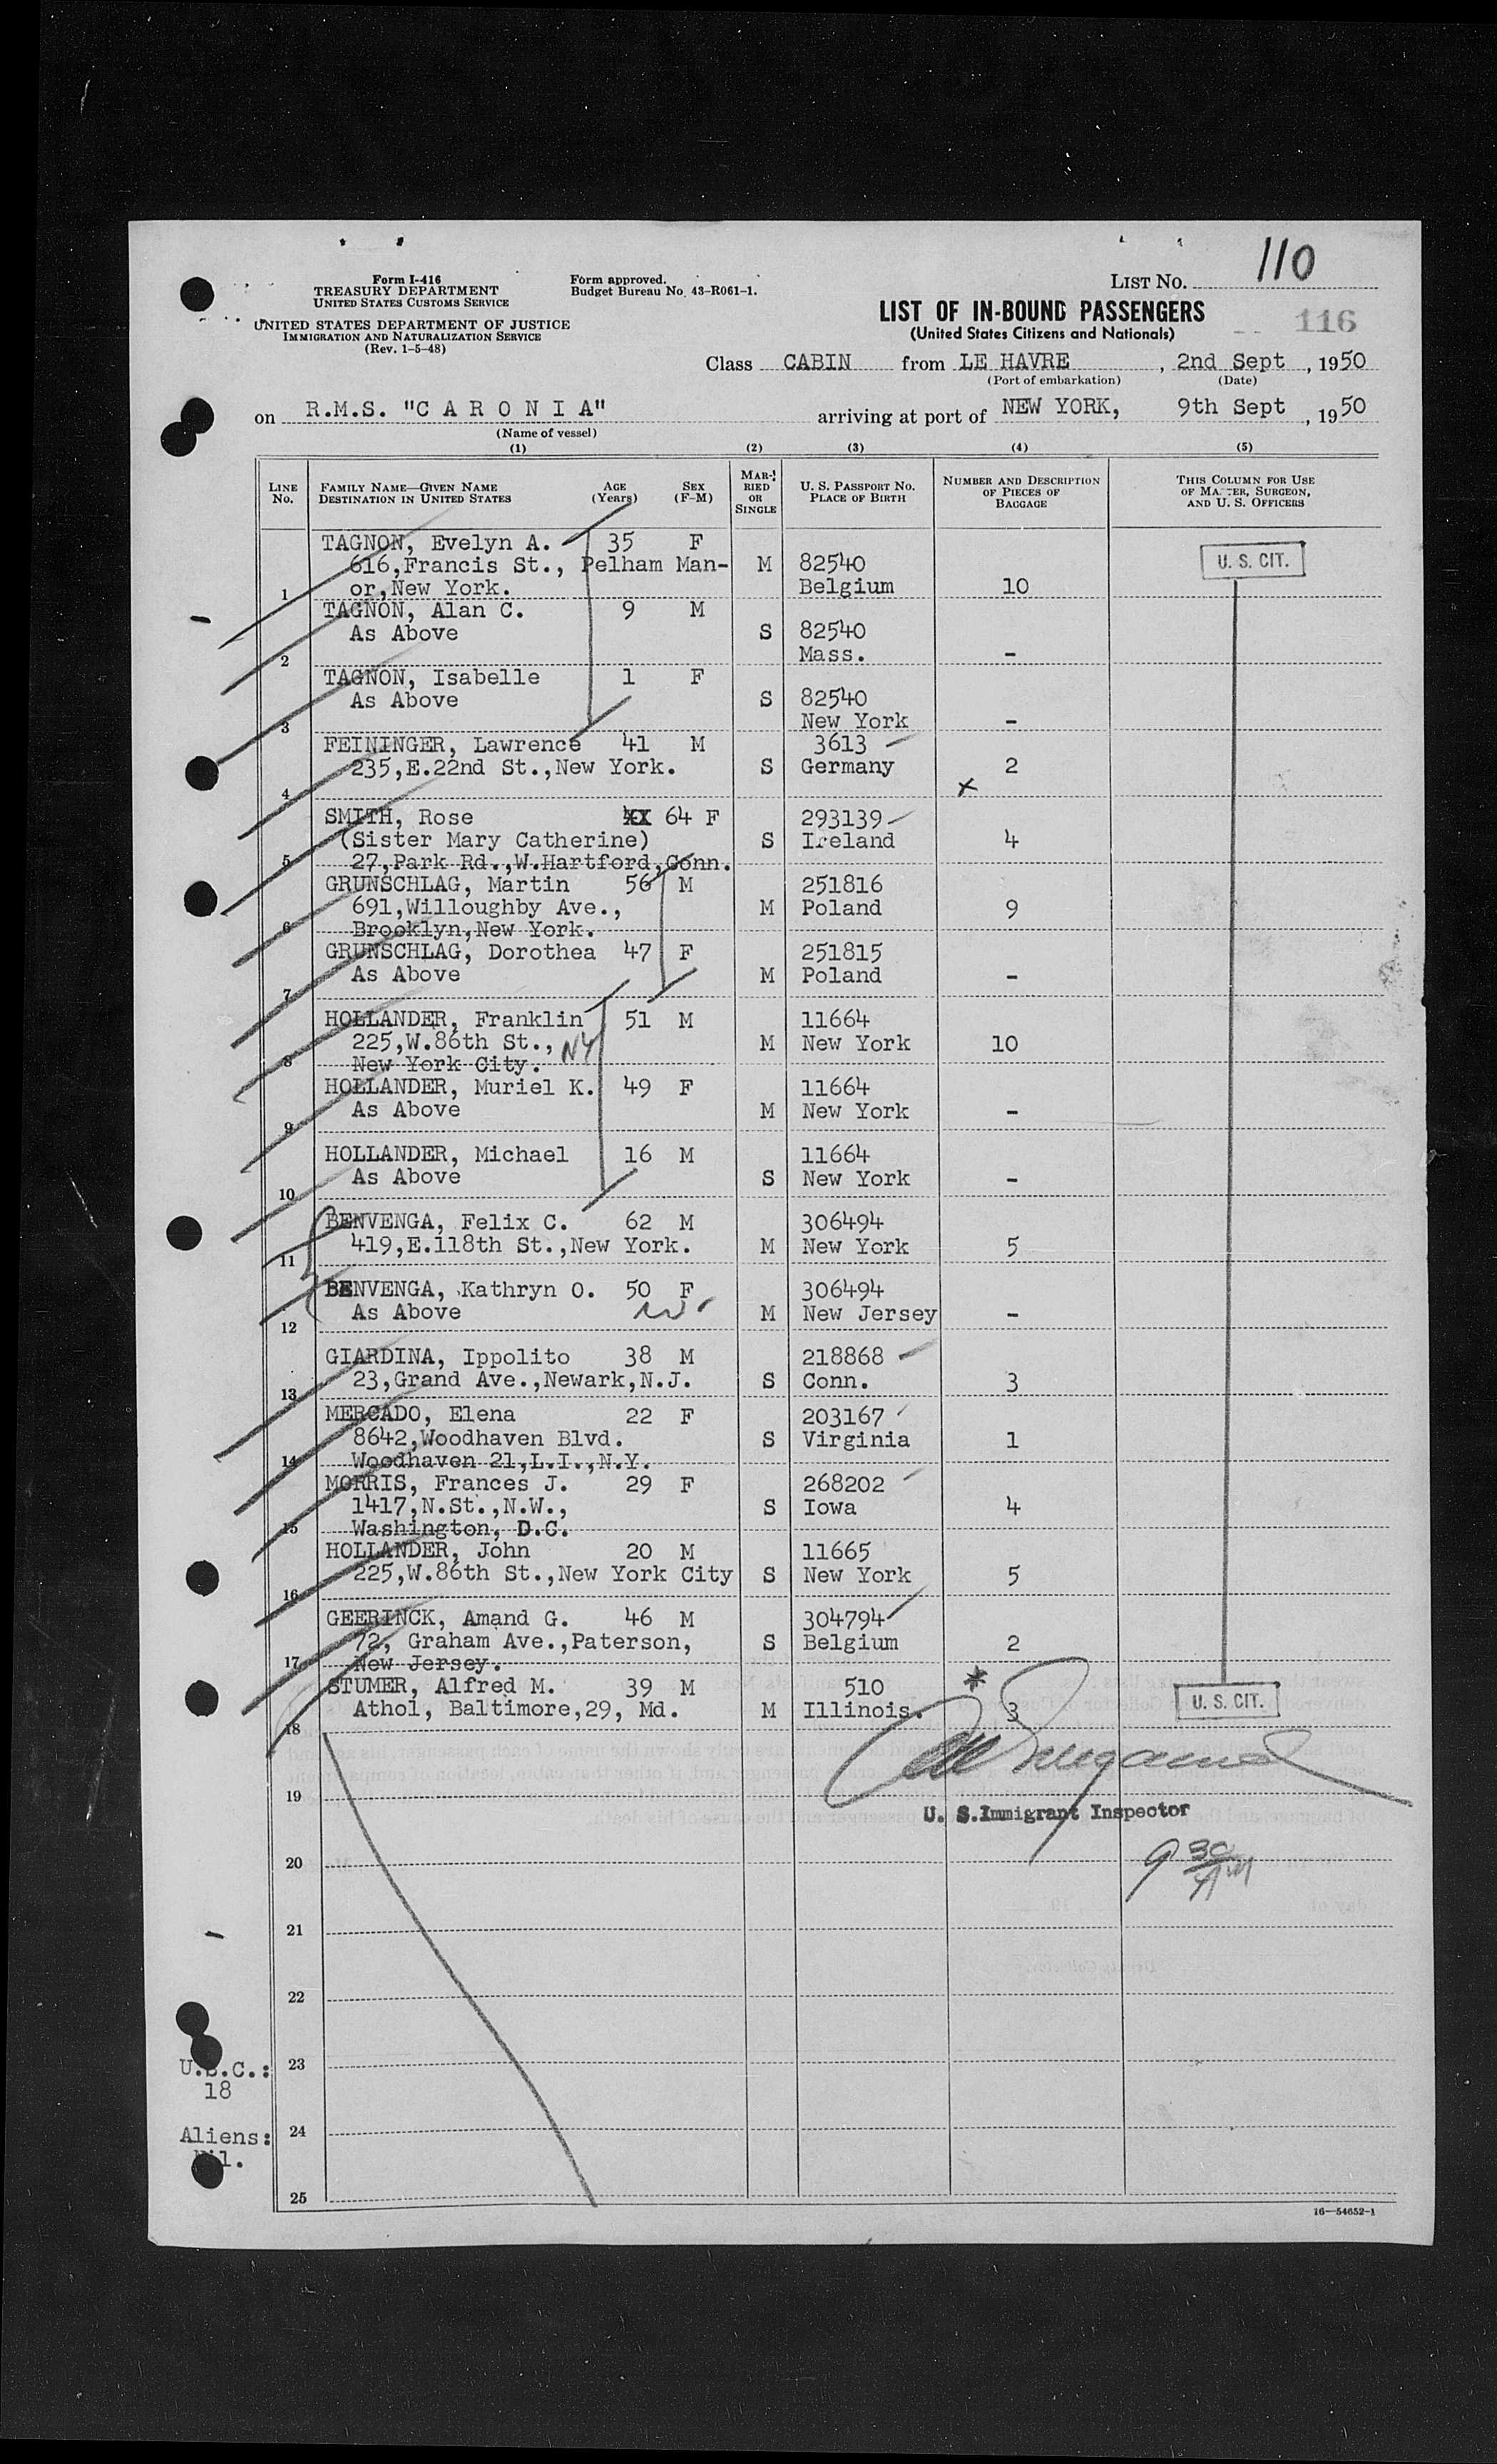 Form I-416
TREASURY DEPARTMENT
UNITED STATES CUSTOMS SERVICE
UNITED STATES DEPARTMENT OF JUSTICE
IMMIGRATION AND NATURALIZATION SERVICE
(Rev. 1-5-48)
Form approved.
Budget Bureau No. 43-R061-1.
LIST NO. 110
LIST OF IN-BOUND PASSENGERS
(United States Citizens and Nationals)
116
Class CABIN from LE HAVRE, 2nd Sept, 1950
(Port of embarkation) (Date)
on R.M.S. "C A R O N I A" arriving at port of NEW YORK, 9th Sept, 1950
(Name of vessel)
(1) (2) (3) (4) (5)
LINE No. FAMILY NAME—GIVEN NAME DESTINATION IN UNITED STATES AGE (Years) SEX (F-M) MAR-RIED OR SINGLE U. S. PASSPORT NO. PLACE OF BIRTH NUMBER AND DESCRIPTION OF PIECES OF BAGGAGE THIS COLUMN FOR USE OF MASTER, SURGEON, AND U. S. OFFICERS
TAGNON, Evelyn A. 35 F
616,Francis St., Pelham Man- M 82540 U. S. CIT.
1 or,New York. Belgium 10
TAGNON, Alan C. 9 M
As Above S 82540
2 Mass. -
TAGNON, Isabelle 1 F
As Above S 82540
3 New York -
FEININGER, Lawrence 41 M 3613
235,E.22nd St.,New York. S Germany 2
4 x
SMITH, Rose XX 64 F 293139
(Sister Mary Catherine) S Ireland 4
5 27,Park Rd.,W.Hartford,Conn.
GRUNSCHLAG, Martin 56 M 251816
691,Willoughby Ave., M Poland 9
6 Brooklyn,New York.
GRUNSCHLAG, Dorothea 47 F 251815
As Above M Poland -
7
HOLLANDER, Franklin 51 M 11664
225,W.86th St., NY M New York 10
8 New York City.
HOLLANDER, Muriel K. 49 F 11664
As Above M New York -
9
HOLLANDER, Michael 16 M 11664
As Above S New York -
10
BENVENGA, Felix C. 62 M 306494
419,E.118th St.,New York. M New York 5
11
BENVENGA, Kathryn O. 50 F 306494
As Above M New Jersey -
12
GIARDINA, Ippolito 38 M 218868
23,Grand Ave.,Newark,N.J. S Conn. 3
13
MERCADO, Elena 22 F 203167
8642,Woodhaven Blvd. S Virginia 1
14 Woodhaven 21,L.I.,N.Y.
MORRIS, Frances J. 29 F 268202
1417,N.St.,N.W., S Iowa 4
15 Washington, D.C.
HOLLANDER, John 20 M 11665
225,W.86th St.,New York City S New York 5
16
GEERINCK, Amand G. 46 M 304794
72, Graham Ave.,Paterson, S Belgium 2
17 New Jersey.
STUMER, Alfred M. 39 M 510 *
Athol, Baltimore,29, Md. M Illinois. 3 U. S. CIT.
18
19
U. S. Immigrant Inspector
20 9 30 AM
21
22
U.S.C.: 23
18
Aliens: 24
Nil.
25
16—54652-1